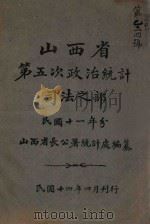 山西省
第五次政治統計
司法之部
民國十一年分
山西省長公署統計處編纂
民國十四年四月刊行